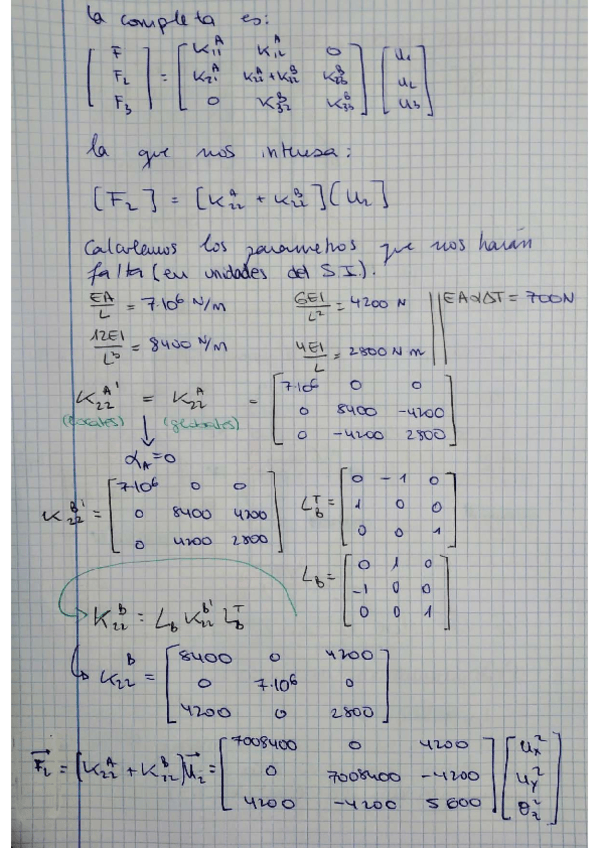 la completa es:
[F F₂ F₃] = [K₁₁ᴬ K₁₂ᴬ 0; K₂₁ᴬ K₂₂ᴬ+K₂₂ᴮ K₂₃ᴮ; 0 K₃₂ᴮ K₃₃ᴮ] [u₁ u₂ u₃]
la que nos interesa:
[F₂] = [K₂₂ᴬ + K₂₂ᴮ] [u₂]
Calculemos los parametros que nos harán
falta (en unidades del S.I.).
EA/L = 7·10⁶ N/m 6EI/L² = 4200 N || EAα∆T = 700N
12EI/L³ = 8400 N/m 4EI/L = 2800 N m
K₂₂ᴬ' = K₂₂ᴬ = [7·10⁶ 0 0; 0 8400 -4200; 0 -4200 2800]
(locales) (globales)
α_A = 0
K₂₂ᴮ' = [7·10⁶ 0 0; 0 8400 4200; 0 4200 2800] L_Bᵀ = [0 -1 0; 1 0 0; 0 0 1]
L_B = [0 1 0; -1 0 0; 0 0 1]
K₂₂ᴮ = L_B K₂₂ᴮ' L_Bᵀ
K₂₂ᴮ = [8400 0 4200; 0 7·10⁶ 0; 4200 0 2800]
F₂ = [K₂₂ᴬ + K₂₂ᴮ] u₂ = [7008400 0 4200; 0 7008400 -4200; 4200 -4200 5600] [uₓ² u_y² θ_z²]